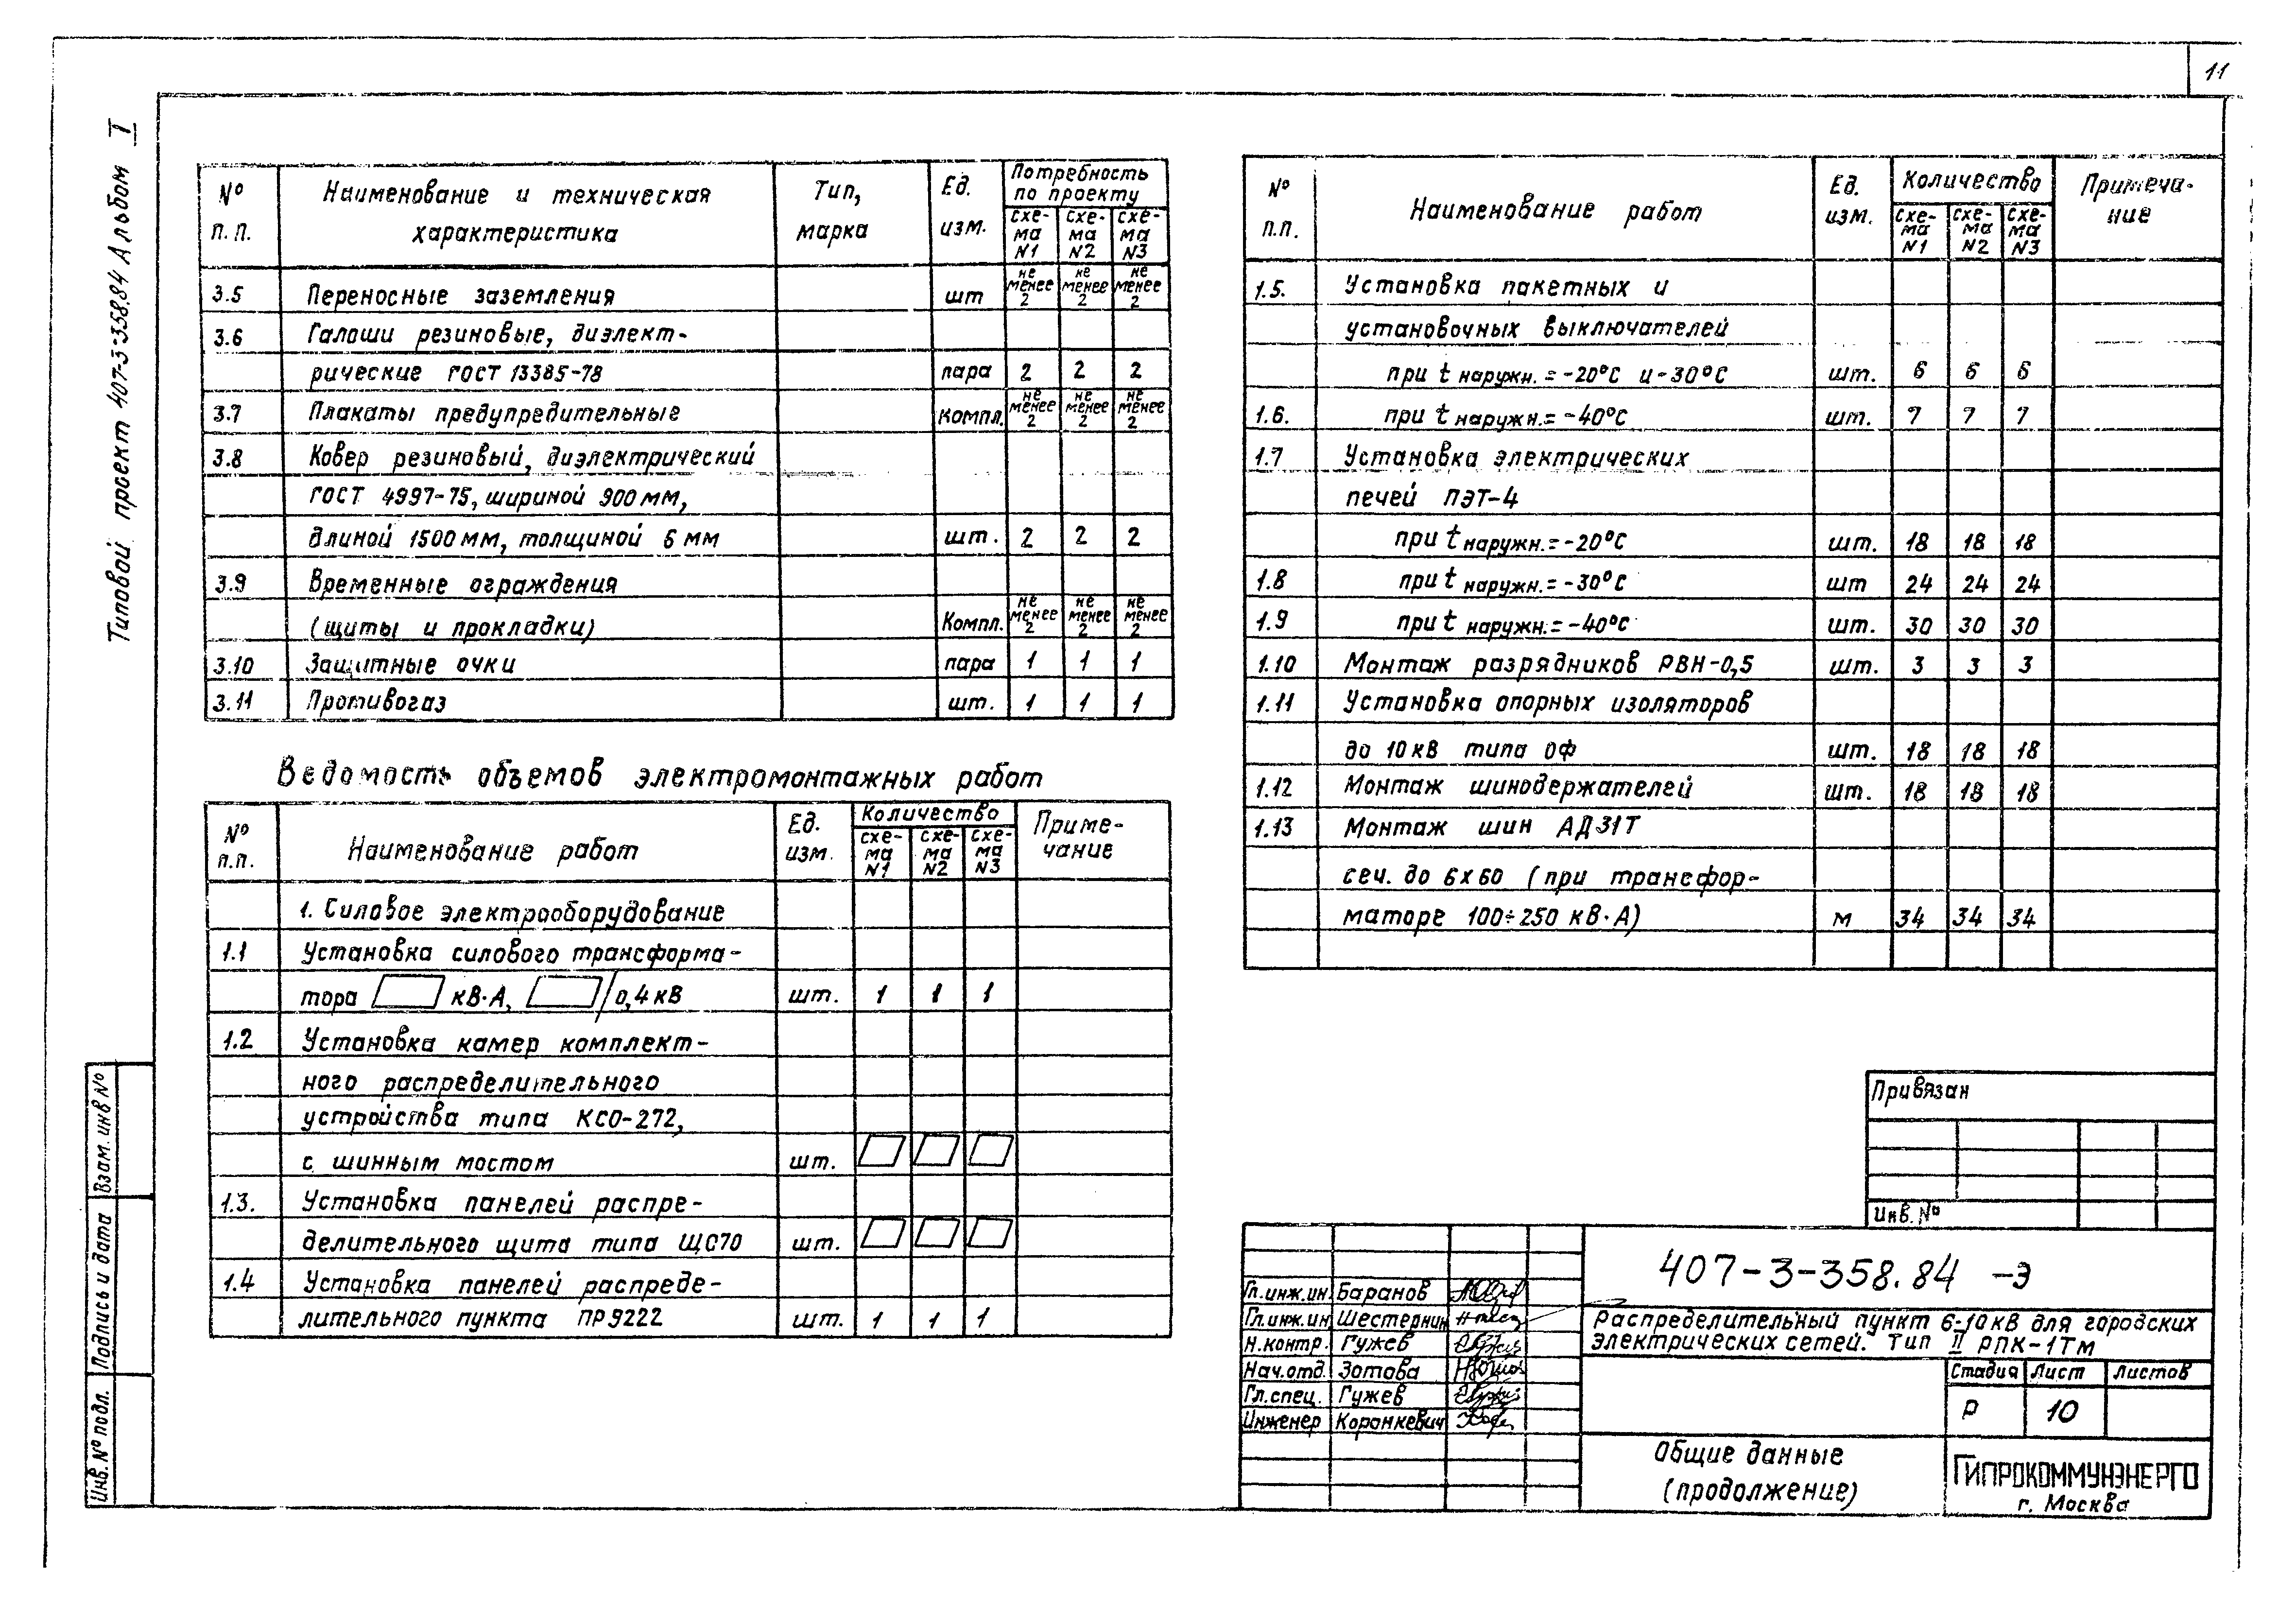 11
Типовой проект 407-3-358.84 Альбом I
№ п.п. Наименование и техническая характеристика Тип, марка Ед. изм. Потребность по проекту
схе-ма N1 схе-ма N2 схе-ма N3
3.5 Переносные заземления шт не менее 2 не менее 2 не менее 2
3.6 Галоши резиновые, диэлект-
рические ГОСТ 13385-78 пара 2 2 2
3.7 Плакаты предупредительные компл. не менее 2 не менее 2 не менее 2
3.8 Ковер резиновый, диэлектрический
ГОСТ 4997-75, шириной 900 мм,
длиной 1500 мм, толщиной 6 мм шт. 2 2 2
3.9 Временные ограждения
(щиты и прокладки) Компл. не менее 2 не менее 2 не менее 2
3.10 Защитные очки пара 1 1 1
3.11 Противогаз шт. 1 1 1
Ведомость объемов электромонтажных работ
№ п.п. Наименование работ Ед. изм. Количество Приме-чание
схе-ма N1 схе-ма N2 схе-ма N3
1. Силовое электрооборудование
1.1 Установка силового трансформа-
тора кВ·А, /0,4 кВ шт. 1 1 1
1.2 Установка камер комплект-
ного распределительного
устройства типа КСО-272,
с шинным мостом шт.
1.3. Установка панелей распре-
делительного щита типа ЩО70 шт.
1.4 Установка панелей распреде-
лительного пункта ПР9222 шт. 1 1 1
№ п.п. Наименование работ Ед. изм. Количество Примеча-ние
схе-ма N1 схе-ма N2 схе-ма N3
1.5. Установка пакетных и
установочных выключателей
при t наружн. = -20°С и -30°С шт. 6 6 6
1.6. при t наружн. = -40°С шт. 7 7 7
1.7 Установка электрических
печей ПЭТ-4
при t наружн. = -20°С шт. 18 18 18
1.8 при t наружн. = -30°С шт 24 24 24
1.9 при t наружн. = -40°С шт. 30 30 30
1.10 Монтаж разрядников РВН-0,5 шт. 3 3 3
1.11 Установка опорных изоляторов
до 10 кВ типа ОФ шт. 18 18 18
1.12 Монтаж шинодержателей шт. 18 18 18
1.13 Монтаж шин АД31Т
сеч. до 6х60 (при трансфор-
маторе 100÷250 кВ·А) м 34 34 34
Привязан
Инв. №
Взам. инв №
Подпись и дата
Инв. № подл.
Гл.инж.ин Баранов
Гл.инж.ин Шестернин
Н.контр. Гужев
Нач.отд. Зотова
Гл.спец. Гужев
Инженер Коронкевич
407-3-358.84 -Э
Распределительный пункт 6-10 кВ для городских
электрических сетей. Тип II РПК-1Тм
Стадия Лист Листов
Р 10
Общие данные
(продолжение)
ГИПРОКОММУНЭНЕРГО
г. Москва